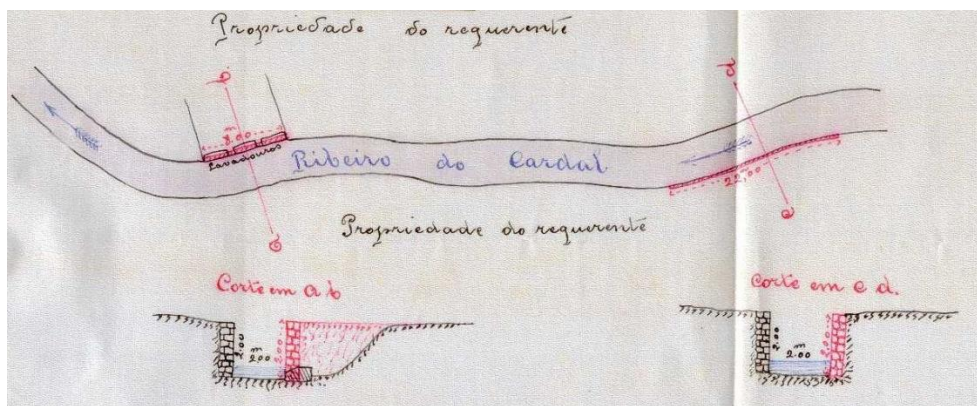 Propriedade do requerente
b
d
m
8.00
Lavadouros
Ribeiro do Cardal
22,00
a
c
Propriedade do requerente
Corte em a b
Corte em c d.
2.00
m
2.00
2.00
2.00
m
2.00
2.00